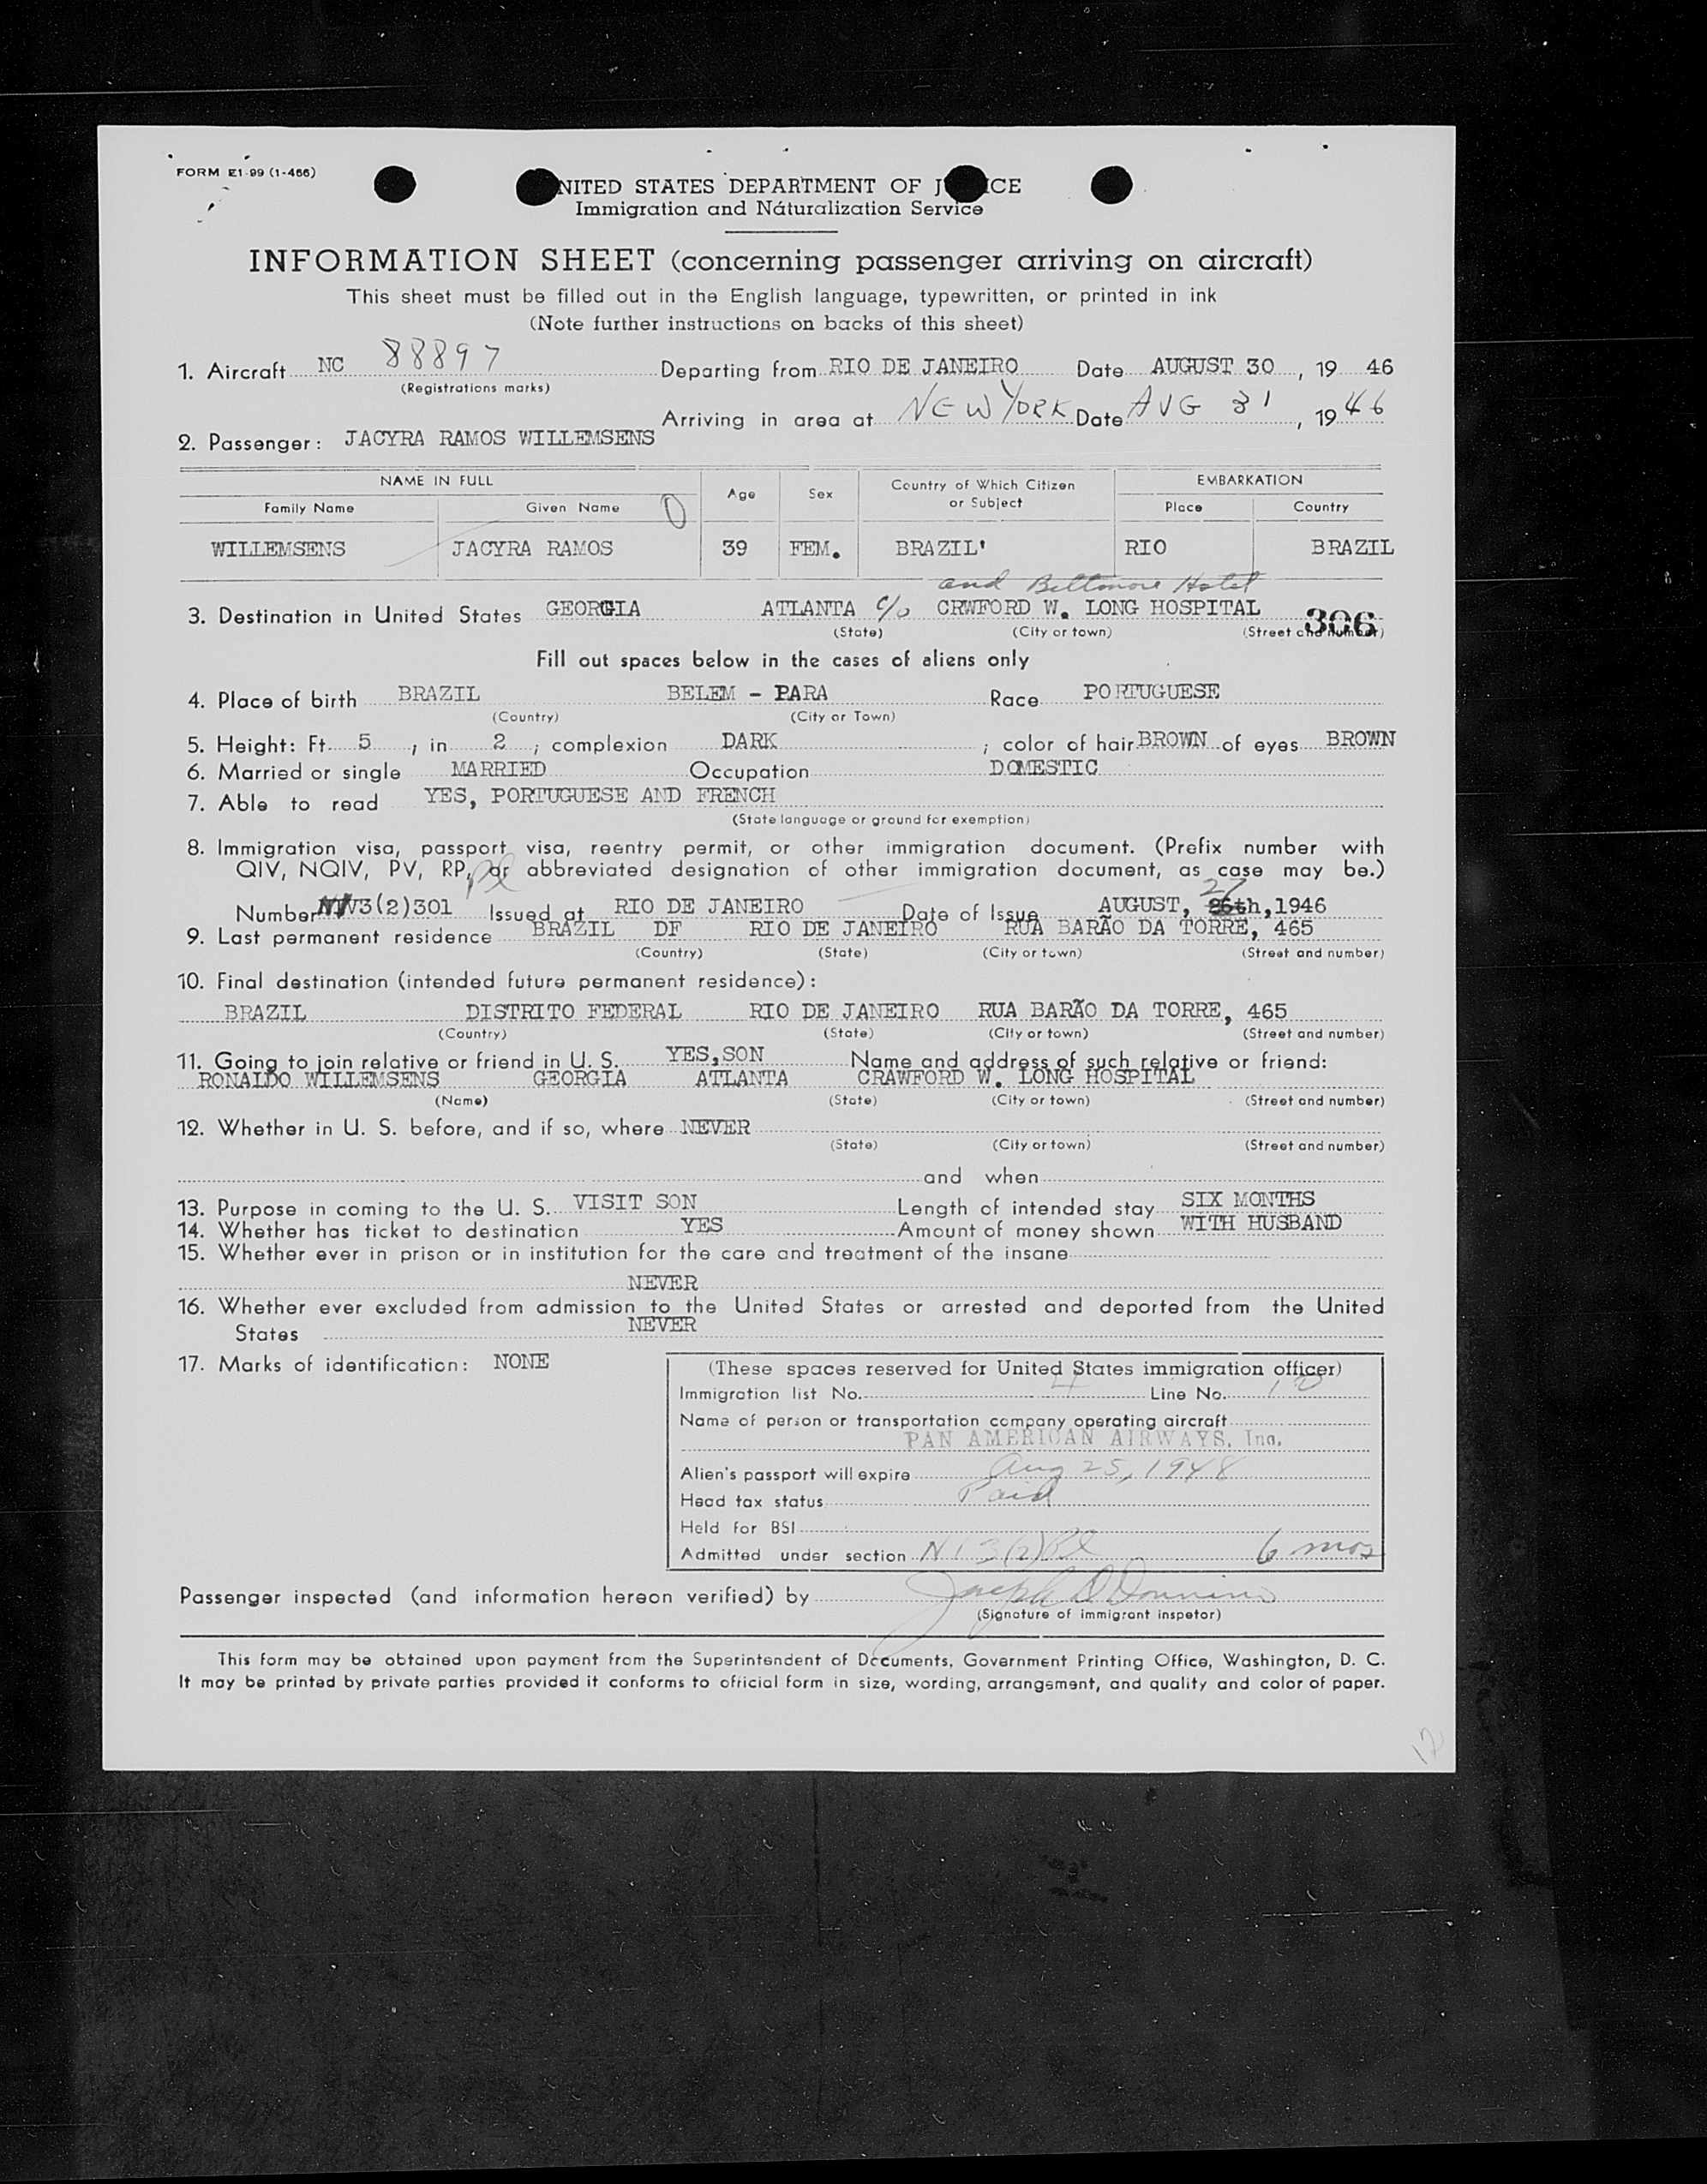 FORM E1-99 (1-466)
UNITED STATES DEPARTMENT OF JUSTICE
Immigration and Naturalization Service
INFORMATION SHEET (concerning passenger arriving on aircraft)
This sheet must be filled out in the English language, typewritten, or printed in ink
(Note further instructions on backs of this sheet)
1. Aircraft NC 88897 Departing from RIO DE JANEIRO Date AUGUST 30, 19 46
(Registrations marks)
Arriving in area at NEW YORK Date AUG 31, 19 46
2. Passenger: JACYRA RAMOS WILLEMSENS
NAME IN FULL Age Sex Country of Which Citizen or Subject EMBARKATION
Family Name Given Name Place Country
WILLEMSENS JACYRA RAMOS 39 FEM. BRAZIL' RIO BRAZIL
and Beltmore Hotel
3. Destination in United States GEORGIA ATLANTA c/o CRWFORD W. LONG HOSPITAL 306
(State) (City or town) (Street and number)
Fill out spaces below in the cases of aliens only
4. Place of birth BRAZIL BELEM - PARA Race PORTUGUESE
(Country) (City or Town)
5. Height: Ft. 5, in 2; complexion DARK; color of hair BROWN of eyes BROWN
6. Married or single MARRIED Occupation DOMESTIC
7. Able to read YES, PORTUGUESE AND FRENCH
(State language or ground for exemption)
8. Immigration visa, passport visa, reentry permit, or other immigration document. (Prefix number with
QIV, NQIV, PV, RP, or abbreviated designation of other immigration document, as case may be.)
27
Number 3(2)301 Issued at RIO DE JANEIRO Date of Issue AUGUST, 26th, 1946
9. Last permanent residence BRAZIL DF RIO DE JANEIRO RUA BARÃO DA TORRE, 465
(Country) (State) (City or town) (Street and number)
10. Final destination (intended future permanent residence):
BRAZIL DISTRITO FEDERAL RIO DE JANEIRO RUA BARÃO DA TORRE, 465
(Country) (State) (City or town) (Street and number)
11. Going to join relative or friend in U. S. YES, SON Name and address of such relative or friend:
RONALDO WILLEMSENS GEORGIA ATLANTA CRAWFORD W. LONG HOSPITAL
(Name) (State) (City or town) (Street and number)
12. Whether in U. S. before, and if so, where NEVER
(State) (City or town) (Street and number)
and when
13. Purpose in coming to the U. S. VISIT SON Length of intended stay SIX MONTHS
14. Whether has ticket to destination YES Amount of money shown WITH HUSBAND
15. Whether ever in prison or in institution for the care and treatment of the insane
NEVER
16. Whether ever excluded from admission to the United States or arrested and deported from the United
States NEVER
17. Marks of identification: NONE
(These spaces reserved for United States immigration officer)
Immigration list No. 4 Line No. 10
Name of person or transportation company operating aircraft
PAN AMERICAN AIRWAYS, Inc.
Alien's passport will expire Aug 25, 1948
Head tax status Paid
Held for BSI
Admitted under section 3(2) 6 mos
Passenger inspected (and information hereon verified) by Joseph
(Signature of immigrant inspetor)
This form may be obtained upon payment from the Superintendent of Documents, Government Printing Office, Washington, D. C.
It may be printed by private parties provided it conforms to official form in size, wording, arrangement, and quality and color of paper.
12